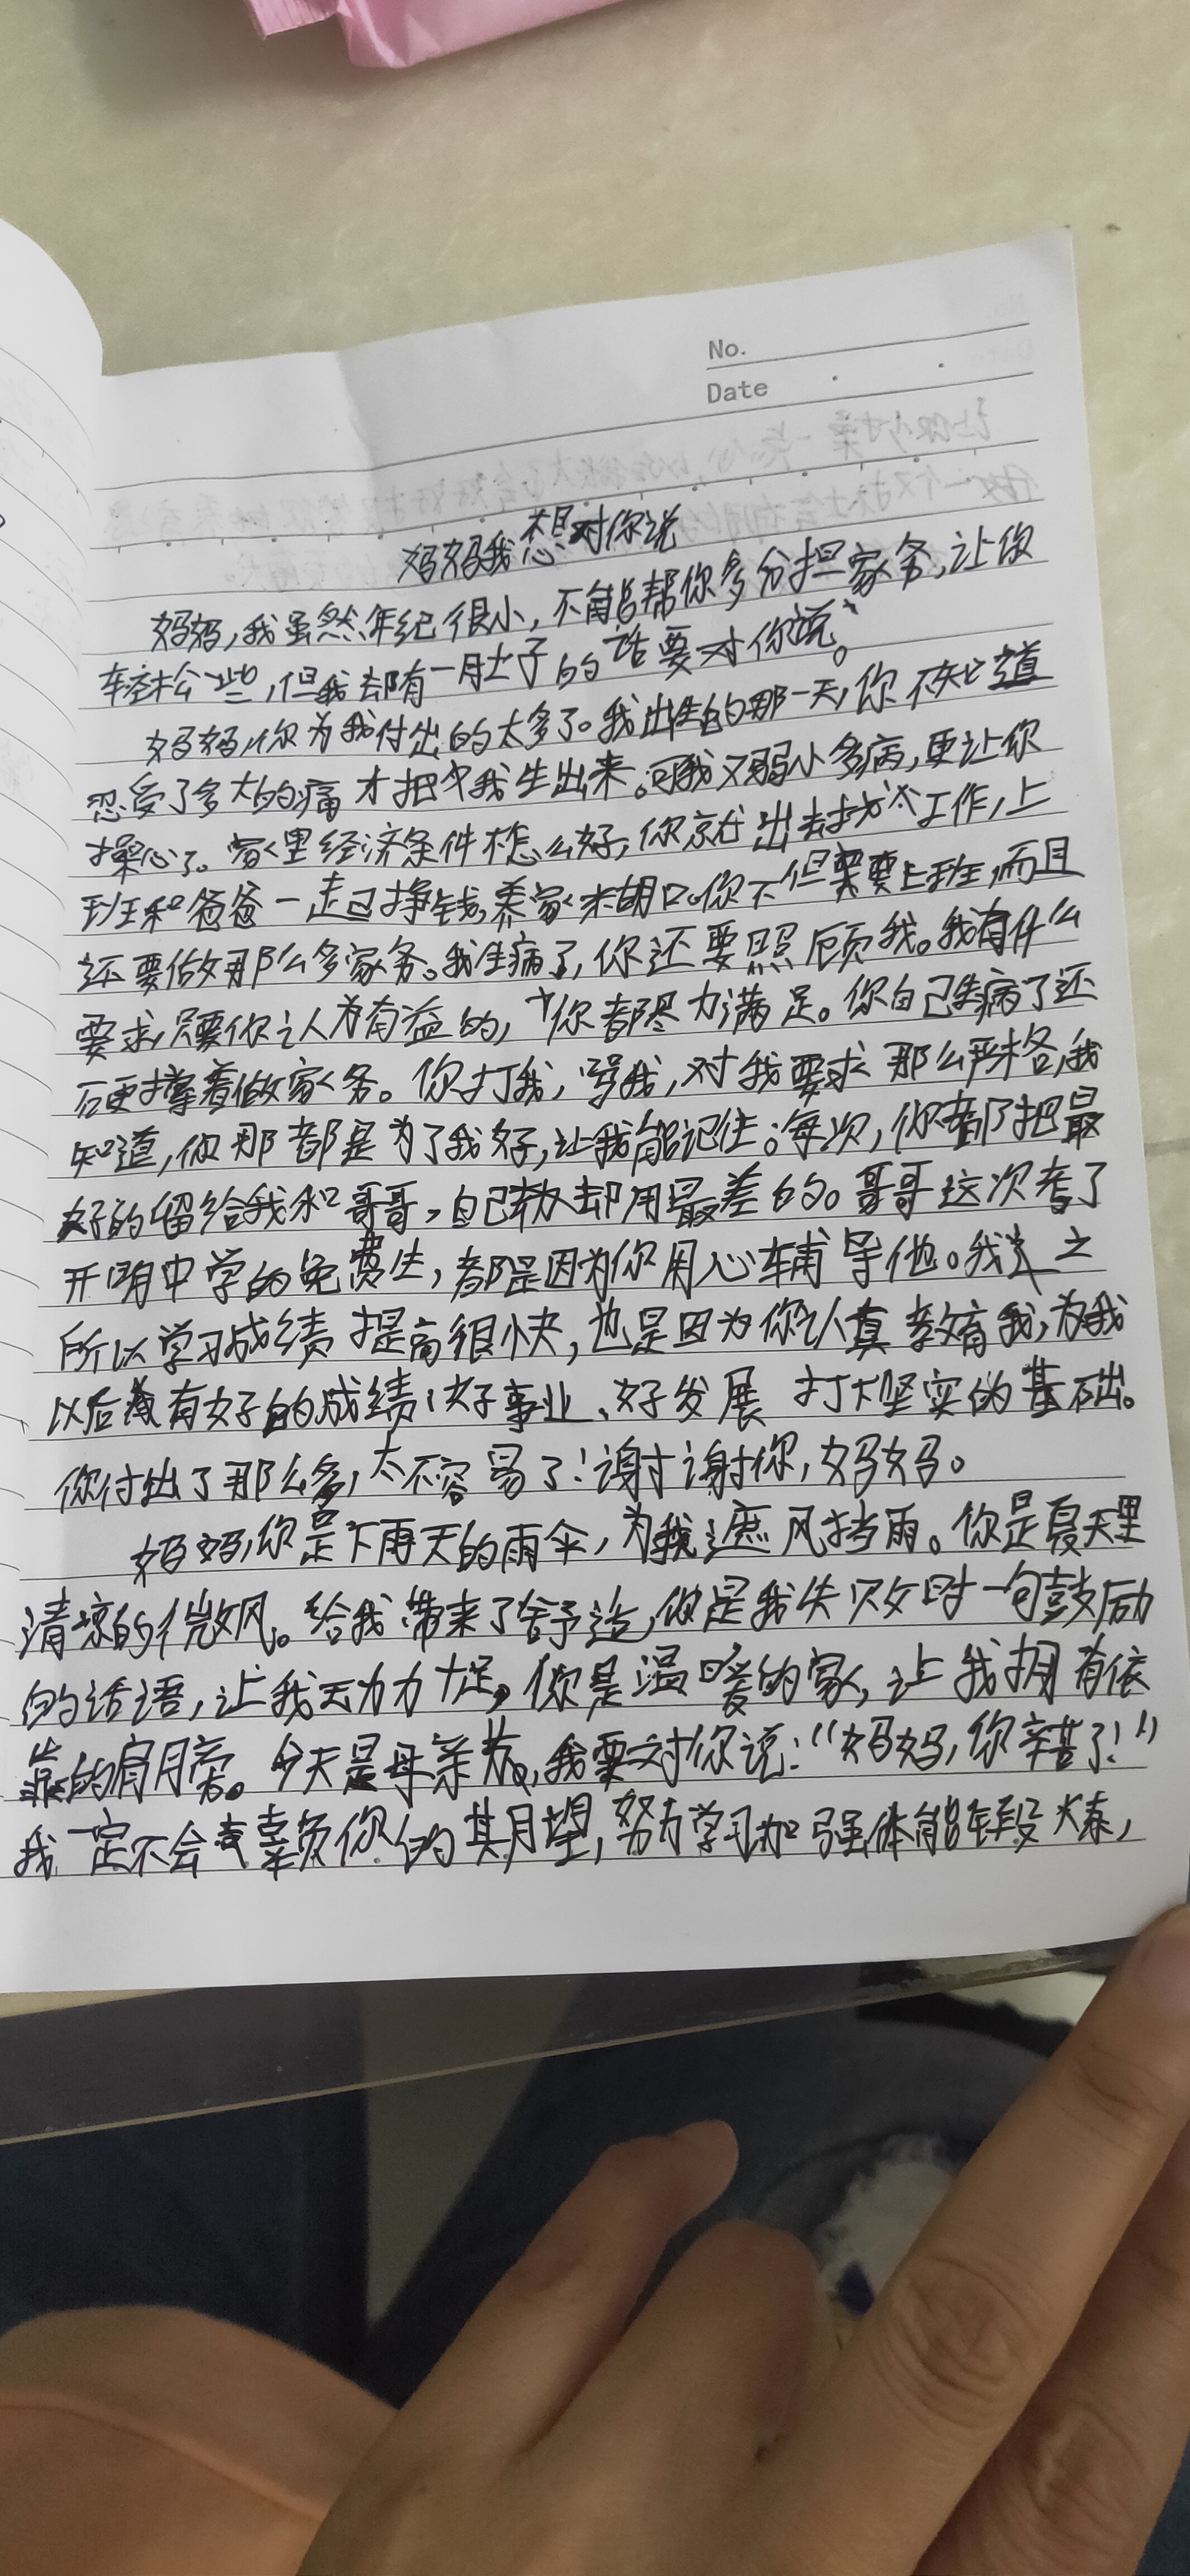 No.
Date
妈妈我想对你说
妈妈,我虽然年纪很小,不能帮你多分担家务,让你
轻松一些,但我却有一肚子的话要对你说。
妈妈,你为我付出的太多了。我出生的那一天,你不知道
忍受了多大的痛才把我生出来。可我又弱小多病,更让你
操心了。家里经济条件不怎么好,你就出去找工作,上
班和爸爸一起挣钱,养家糊口。你不但需要上班,而且
还要做那么多家务。我生病了,你还要照顾我。我有什么
要求,只要你认为有益的,你都尽力满足。你自己生病了还
硬撑着做家务。你打我,骂我,对我要求那么严格,我
知道,你那都是为了我好,让我能记住。每次,你都把最
好的留给我和哥哥,自己却用最差的。哥哥这次考了
开明中学的免费生,都是因为你用心辅导他。我之
所以学习成绩提高很快,也是因为你认真教育我,为我
以后有好的成绩、好事业、好发展打下坚实的基础。
你付出了那么多,太不容易了!谢谢你,妈妈。
妈妈,你是下雨天的雨伞,为我遮风挡雨。你是夏天里
清凉的微风。给我带来了舒适,你是我失败时一句鼓励
的话语,让我动力十足,你是温暖的家,让我拥有依
靠的肩膀。今天是母亲节,我要对你说:“妈妈,你辛苦了!”
我一定不会辜负你的期望,努力学习加强体能锻炼,